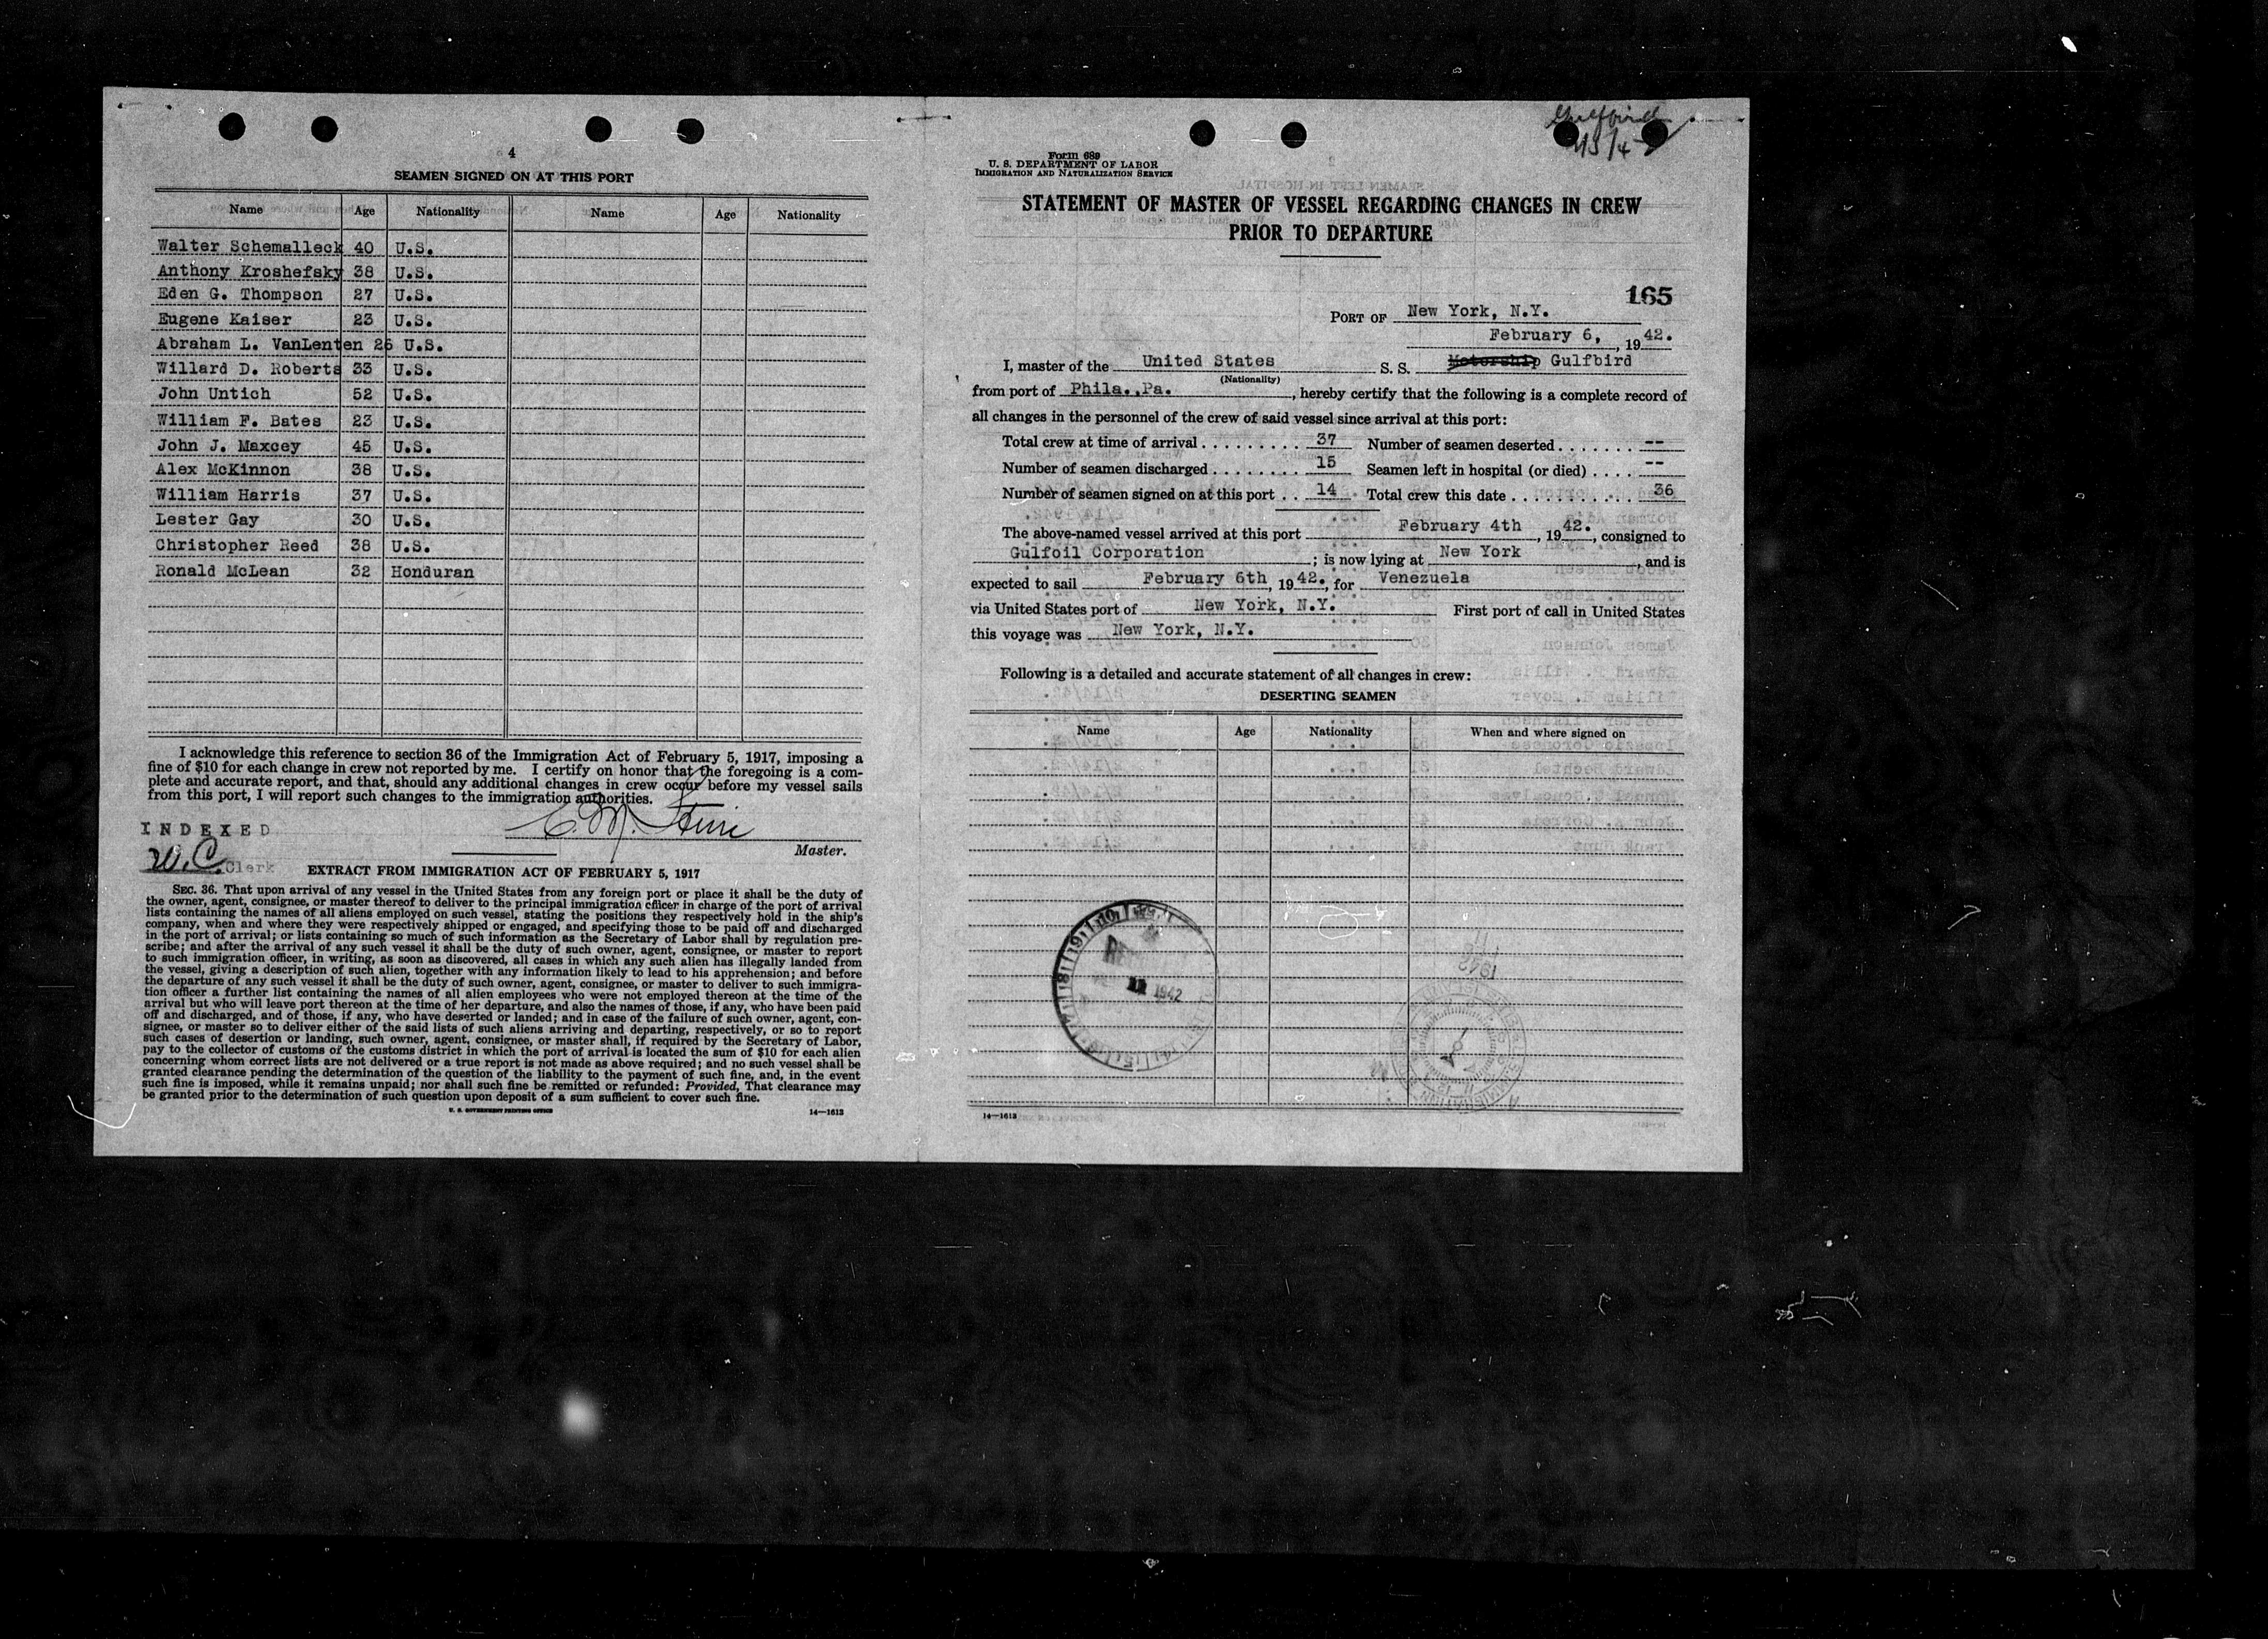 4
SEAMEN SIGNED ON AT THIS PORT
Name Age Nationality Name Age Nationality
Walter Schemalleck 40 U.S.
Anthony Kroshefsky 38 U.S.
Eden G. Thompson 27 U.S.
Eugene Kaiser 23 U.S.
Abraham L. VanLenten 26 U.S.
Willard D. Roberts 33 U.S.
John Untich 52 U.S.
William F. Bates 23 U.S.
John J. Maxcey 45 U.S.
Alex McKinnon 38 U.S.
William Harris 37 U.S.
Lester Gay 30 U.S.
Christopher Reed 38 U.S.
Ronald McLean 32 Honduran
I acknowledge this reference to section 36 of the Immigration Act of February 5, 1917, imposing a
fine of $10 for each change in crew not reported by me. I certify on honor that the foregoing is a com-
plete and accurate report, and that, should any additional changes in crew occur before my vessel sails
from this port, I will report such changes to the immigration authorities.
INDEXED
C. M.
Master.
W.C. Clerk
EXTRACT FROM IMMIGRATION ACT OF FEBRUARY 5, 1917
SEC. 36. That upon arrival of any vessel in the United States from any foreign port or place it shall be the duty of
the owner, agent, consignee, or master thereof to deliver to the principal immigration officer in charge of the port of arrival
lists containing the names of all aliens employed on such vessel, stating the positions they respectively hold in the ship's
company, when and where they were respectively shipped or engaged, and specifying those to be paid off and discharged
in the port of arrival; or lists containing so much of such information as the Secretary of Labor shall by regulation pre-
scribe; and after the arrival of any such vessel it shall be the duty of such owner, agent, consignee, or master to report
to such immigration officer, in writing, as soon as discovered, all cases in which any such alien has illegally landed from
the vessel, giving a description of such alien, together with any information likely to lead to his apprehension; and before
the departure of any such vessel it shall be the duty of such owner, agent, consignee, or master to deliver to such immigra-
tion officer a further list containing the names of all alien employees who were not employed thereon at the time of the
arrival but who will leave port thereon at the time of her departure, and also the names of those, if any, who have been paid
off and discharged, and of those, if any, who have deserted or landed; and in case of the failure of such owner, agent, con-
signee, or master so to deliver either of the said lists of such aliens arriving and departing, respectively, or so to report
such cases of desertion or landing, such owner, agent, consignee, or master shall, if required by the Secretary of Labor,
pay to the collector of customs of the customs district in which the port of arrival is located the sum of $10 for each alien
concerning whom correct lists are not delivered or a true report is not made as above required; and no such vessel shall be
granted clearance pending the determination of the question of the liability to the payment of such fine, and, in the event
such fine is imposed, while it remains unpaid; nor shall such fine be remitted or refunded: Provided, That clearance may
be granted prior to the determination of such question upon deposit of a sum sufficient to cover such fine.
U. S. GOVERNMENT PRINTING OFFICE 14—1613
Gulfbird
Form 689
U. S. DEPARTMENT OF LABOR
IMMIGRATION AND NATURALIZATION SERVICE
STATEMENT OF MASTER OF VESSEL REGARDING CHANGES IN CREW
PRIOR TO DEPARTURE
165
PORT OF New York, N.Y.
February 6, , 1942.
I, master of the United States S. S. Motorship Gulfbird
(Nationality)
from port of Phila.,Pa. , hereby certify that the following is a complete record of
all changes in the personnel of the crew of said vessel since arrival at this port:
Total crew at time of arrival . . . . . . . . . . 37 Number of seamen deserted . . . . . . . --
Number of seamen discharged . . . . . . . . 15 Seamen left in hospital (or died) . . . . --
Number of seamen signed on at this port . . 14 Total crew this date . . . . . . . . . . . 36
The above-named vessel arrived at this port February 4th , 1942. , consigned to
Gulfoil Corporation ; is now lying at New York , and is
expected to sail February 6th , 1942. , for Venezuela
via United States port of New York, N.Y. First port of call in United States
this voyage was New York, N.Y.
Following is a detailed and accurate statement of all changes in crew:
DESERTING SEAMEN
Name Age Nationality When and where signed on
1942
14—1613